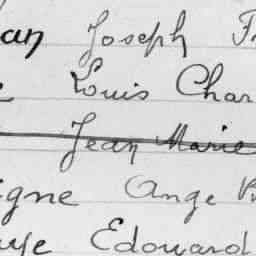 an Joseph
Louis Char
Jean Marie
igne Ange
uye Edouard